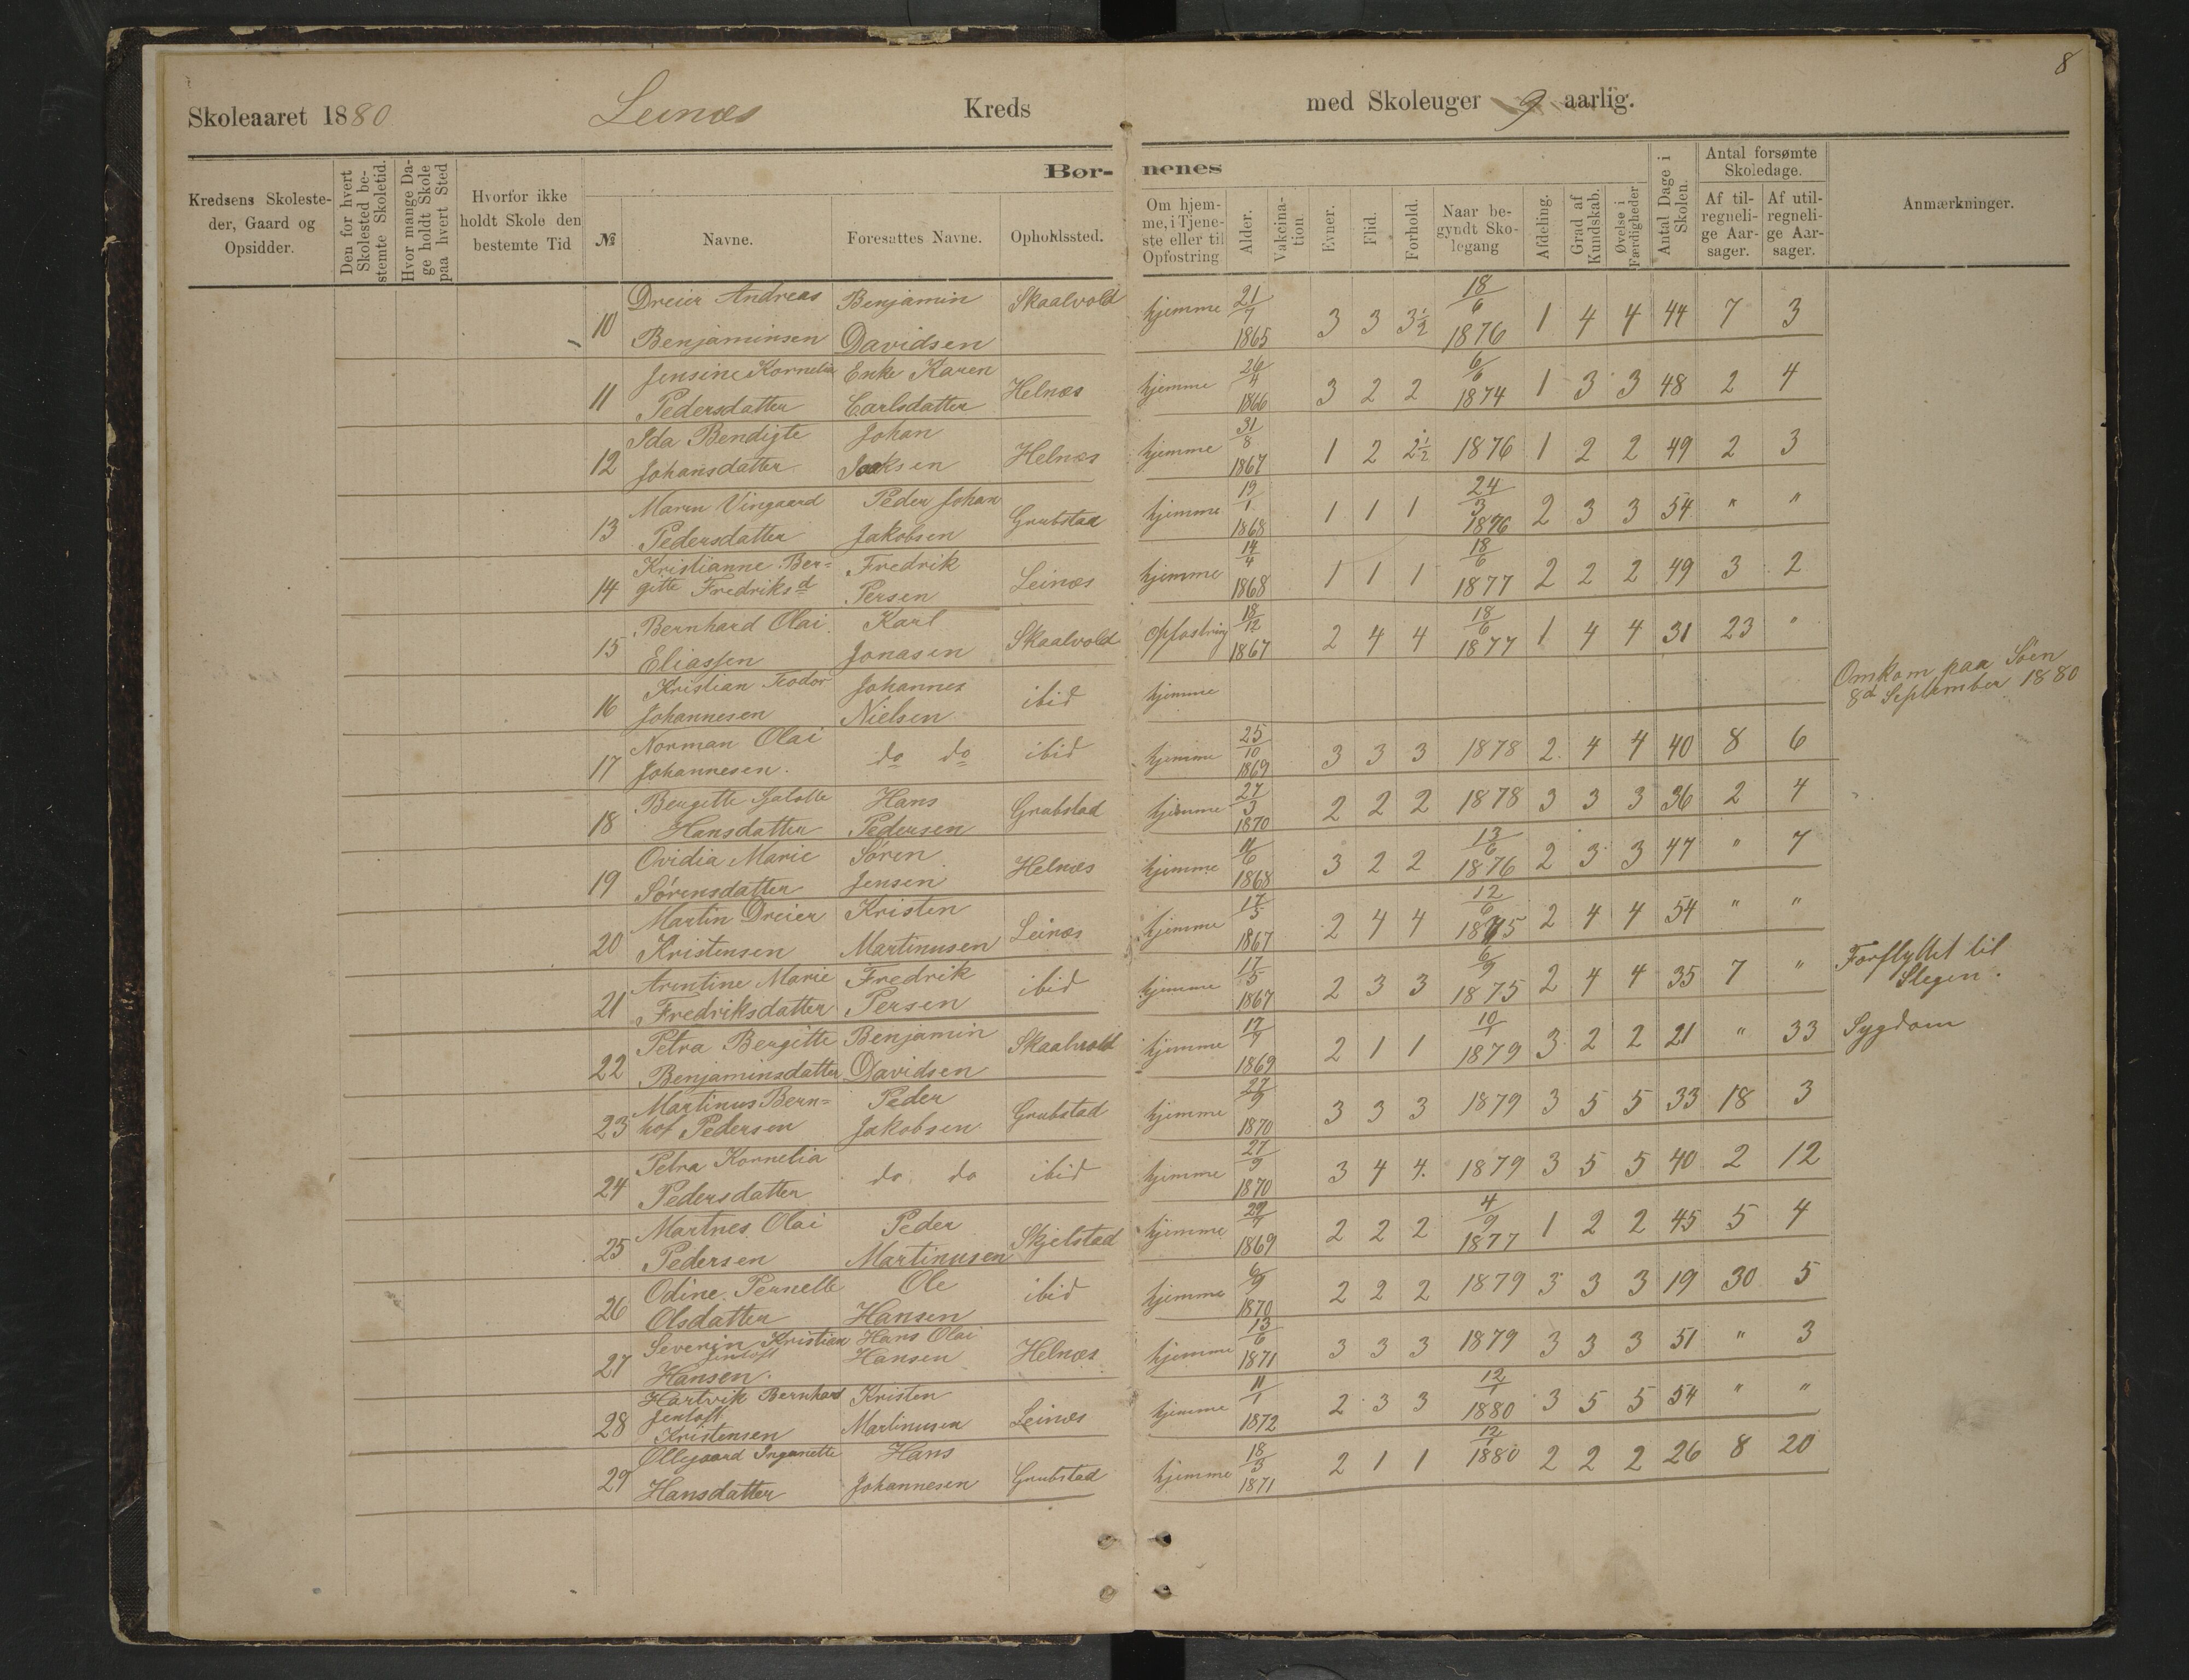 8
Skoleaaret 1880 Leines Kreds med Skoleuger 9 aarlig.
Børnenes
Kredsens Skolesteder, Gaard og Opsidder.
Den for hvert Skolested bestemte Skoletid.
Hvor mange Dage holdt Skole paa hvert Sted
Hvorfor ikke holdt Skole den bestemte Tid
№
Navne.
Foresattes Navne.
Opholdssted.
Om hjemme, i Tjeneste eller til Opfostring
Alder.
Vakcination.
Evner.
Flid.
Forhold.
Naar begyndt Skolegang
Afdeling.
Grad af Kundskab.
Øvelse i Færdigheder
Antal Dage i Skolen.
Antal forsømte Skoledage.
Af tilregnelige Aarsager.
Af utilregnelige Aarsager.
Anmærkninger.
10 Dreier Andreas Benjaminsen Benjamin Davidsen Skaalvold hjemme 21/7 1865 3 3 3½ 18/6 1876 1 4 4 44 7 3
11 Jensine Kornelia Pedersdatter Enke Karen Carlsdatter Helnes hjemme 26/4 1866 3 2 2 6/6 1874 1 3 3 48 2 4
12 Ida Bendigte Johansdatter Johan Isaksen Helnes hjemme 31/8 1867 1 2 2½ 1876 1 2 2 49 2 3
13 Maren Vingaard Pedersdatter Peder Johan Jakobsen Grubstad hjemme 19/1 1868 1 1 1 24/3 1876 2 3 3 54 " "
14 Kristianne Bergitte Fredriksd Fredrik Persen Leines hjemme 14/4 1868 1 1 1 18/6 1877 2 2 2 49 3 2
15 Bernhard Olai Eliassen Karl Jonasen Skaalvold Opfostring 18/12 1867 2 4 4 18/6 1877 1 4 4 31 23 "
16 Kristian Teodor Johannesen Johannes Nielsen ibid hjemme Omkom paa Søen 8d September 1880
17 Norman Olai Johannesen. do do ibid hjemme 25/10 1869 3 3 3 1878 2 4 4 40 8 6
18 Bergitte Hansdatter Hans Pedersen Grubstad hjemme 27/3 1870 2 2 2 1878 3 3 3 36 2 4
19 Ovidia Marie Sørensdatter Søren Jensen Helnes hjemme 11/6 1868 3 2 2 13/6 1876 2 3 3 47 " 7
20 Martin Dreier Kristensen Kristen Martinusen Leines hjemme 17/5 1867 2 4 4 12/6 1875 2 4 4 54 " "
21 Arntine Marie Fredriksdatter Fredrik Persen ibid hjemme 17/5 1867 2 3 3 6/9 1875 2 4 4 35 7 " Forflyttet til Stegen.
22 Petra Bergitte Benjaminsdatter Benjamin Davidsen Skaalvold hjemme 17/7 1869 2 1 1 10/1 1879 3 2 2 21 " 33 Sygdom
23 Martinus Bernhof Pedersen Peder Jakobsen Grubstad hjemme 27/9 1870 3 3 3 1879 3 5 5 33 18 3
24 Petra Kornelia Pedersdatter do do ibid hjemme 27/9 1870 3 4 4. 1879 3 5 5 40 2 12
25 Martnes Olai Pedersen Peder Martinusen Skjelstad hjemme 29/7 1869 2 2 2 4/9 1877 1 2 2 45 5 4
26 Odine Pernelle Olsdatter Ole Hansen ibid hjemme 6/9 1870 2 2 2 1879 3 3 3 19 30 5
27 Severin Kristian Jentoft Hansen. Hans Olai Hansen Helnes hjemme 13/6 1871 3 3 3 1879 3 3 3 51 " 3
28 Hartvik Bernhard Jentoft Kristensen Kristen Martinusen Leines hjemme 11/1 1872 2 3 3 12/1 1880 3 5 5 54 " "
29 Ollegaard Inganette Hansdatter Hans Johannesen Grubstad hjemme 18/3 1871 2 1 1 12/1 1880 2 2 2 26 8 20